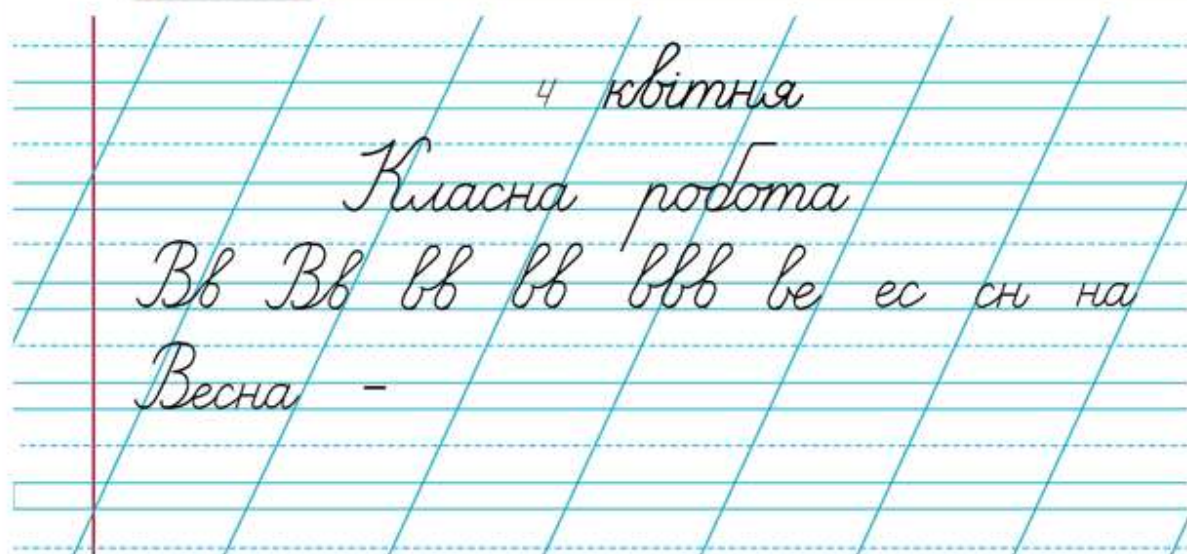 4 квітня
Класна робота
Вв Вв вв вв ввв ве ес сн на
Весна -